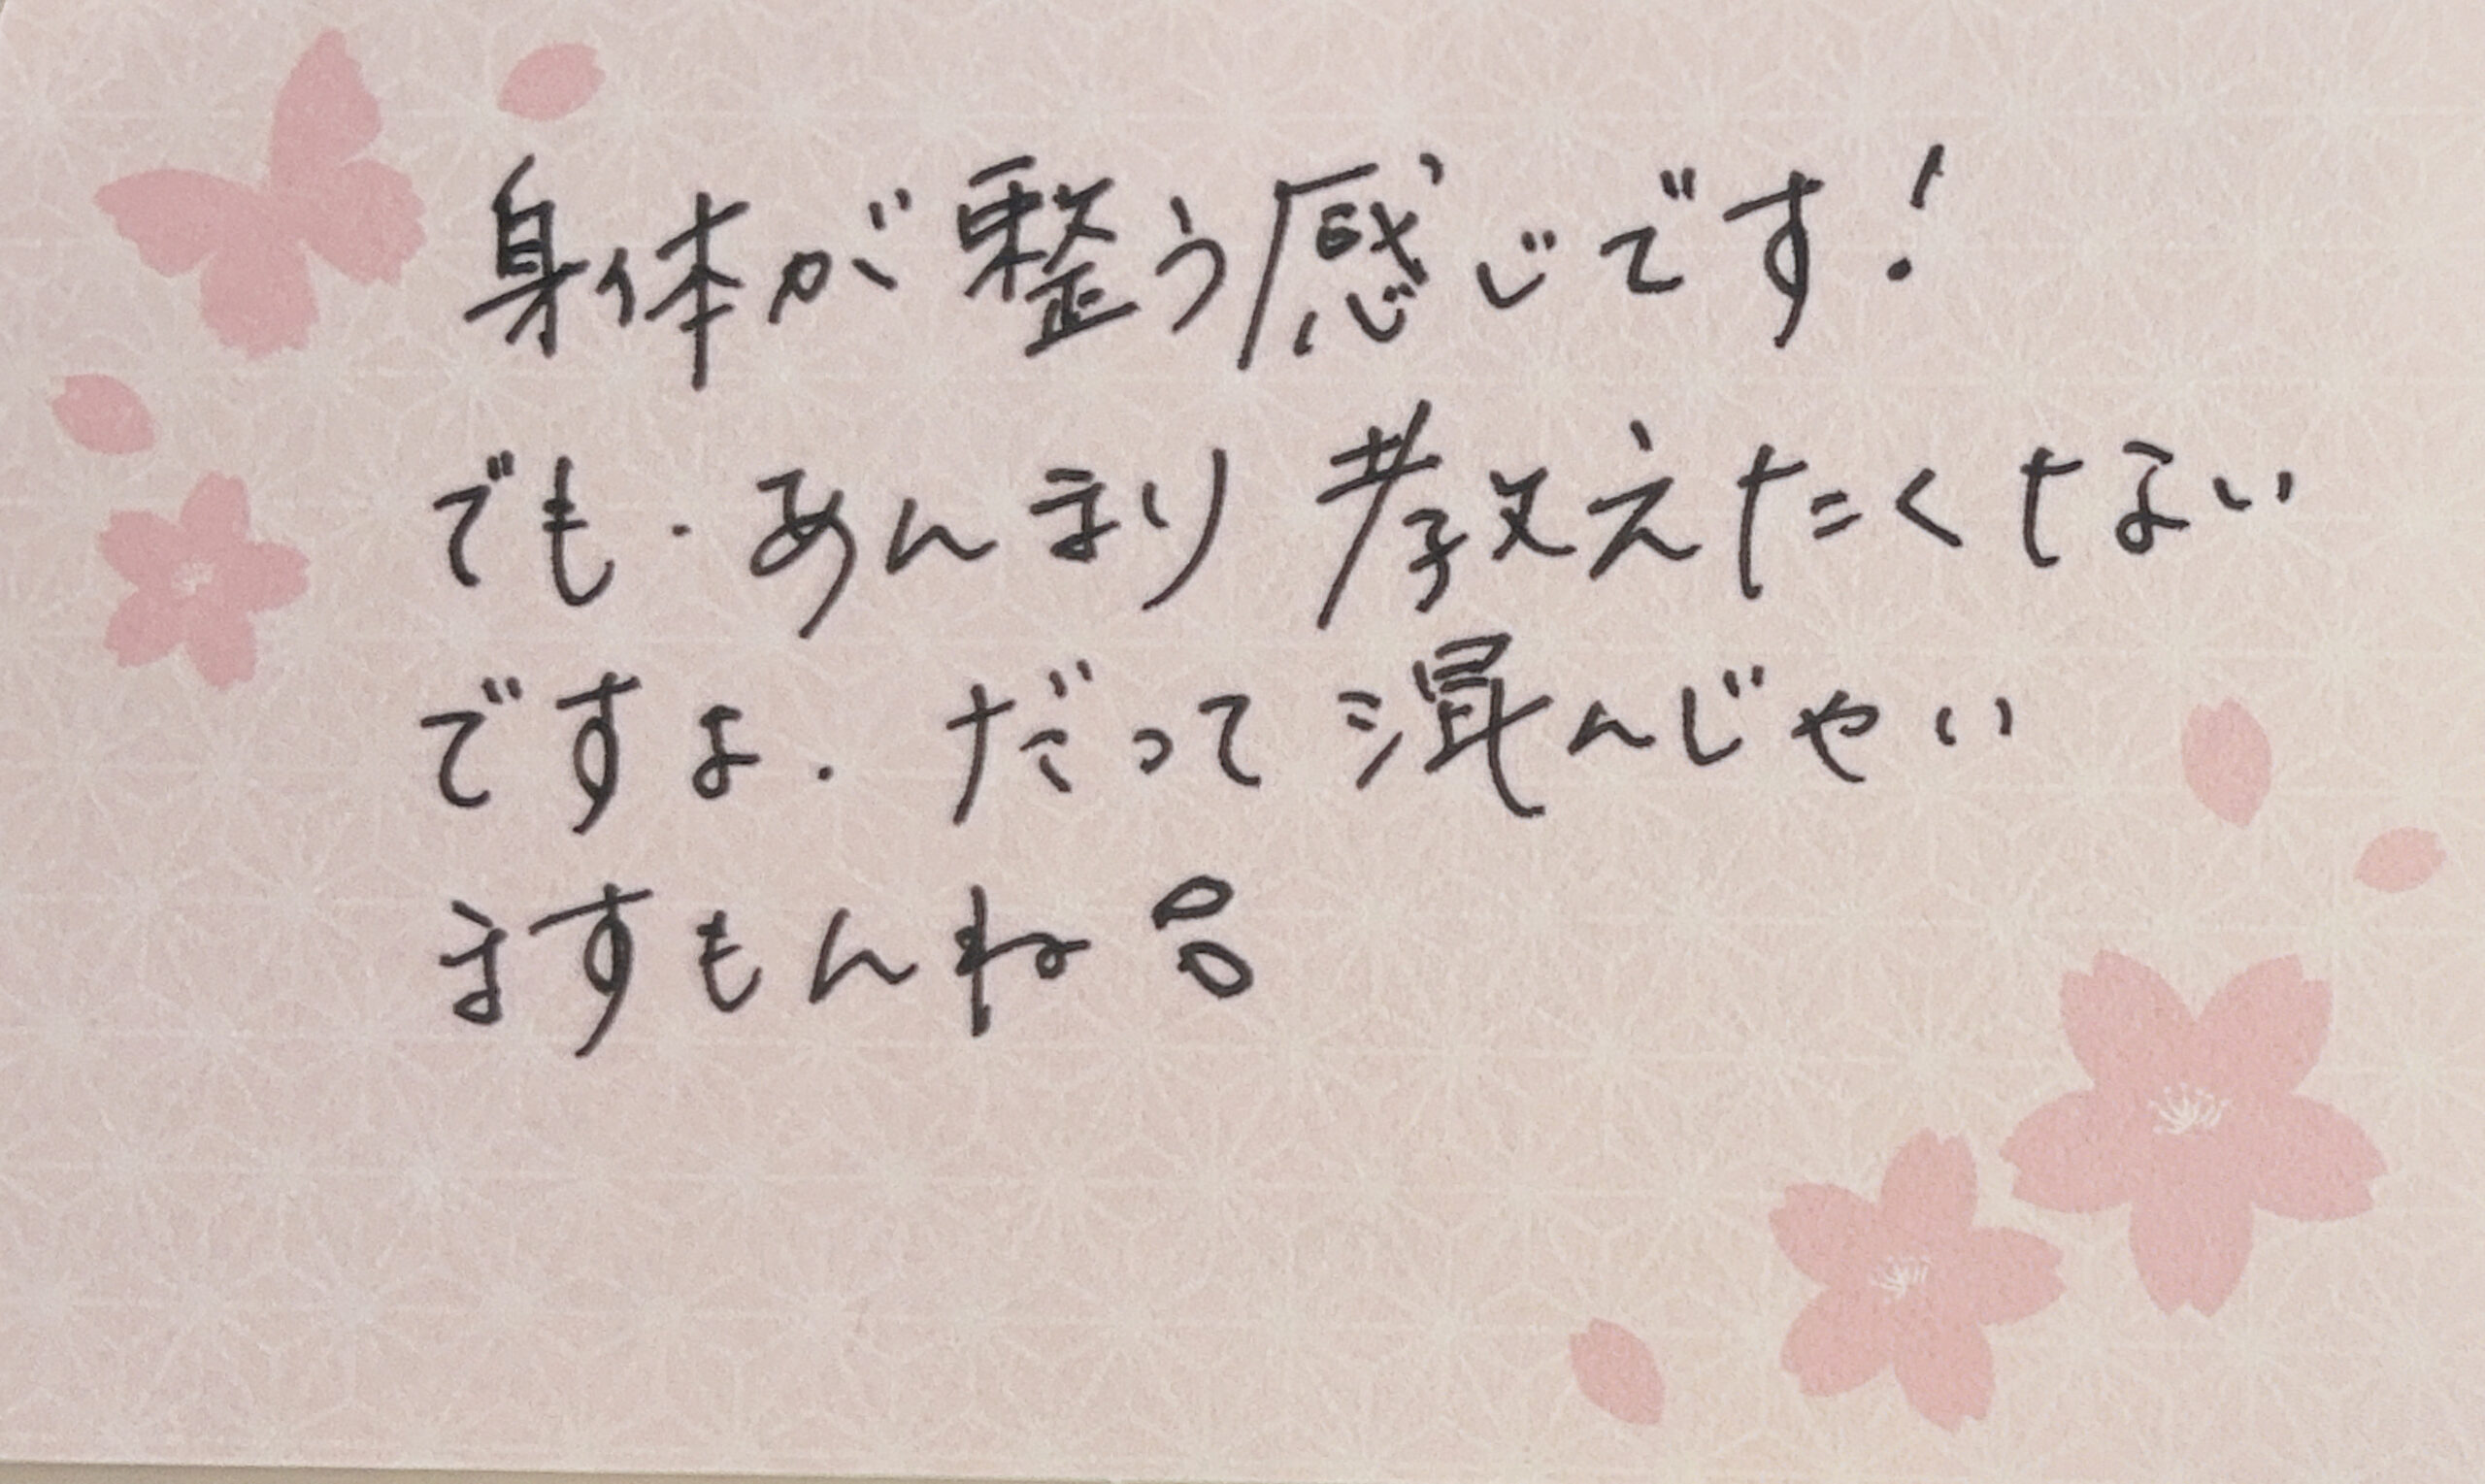 身体が整う感じです!
でも.あんまり教えたくない
ですよ.だって混んじゃい
ますもんね